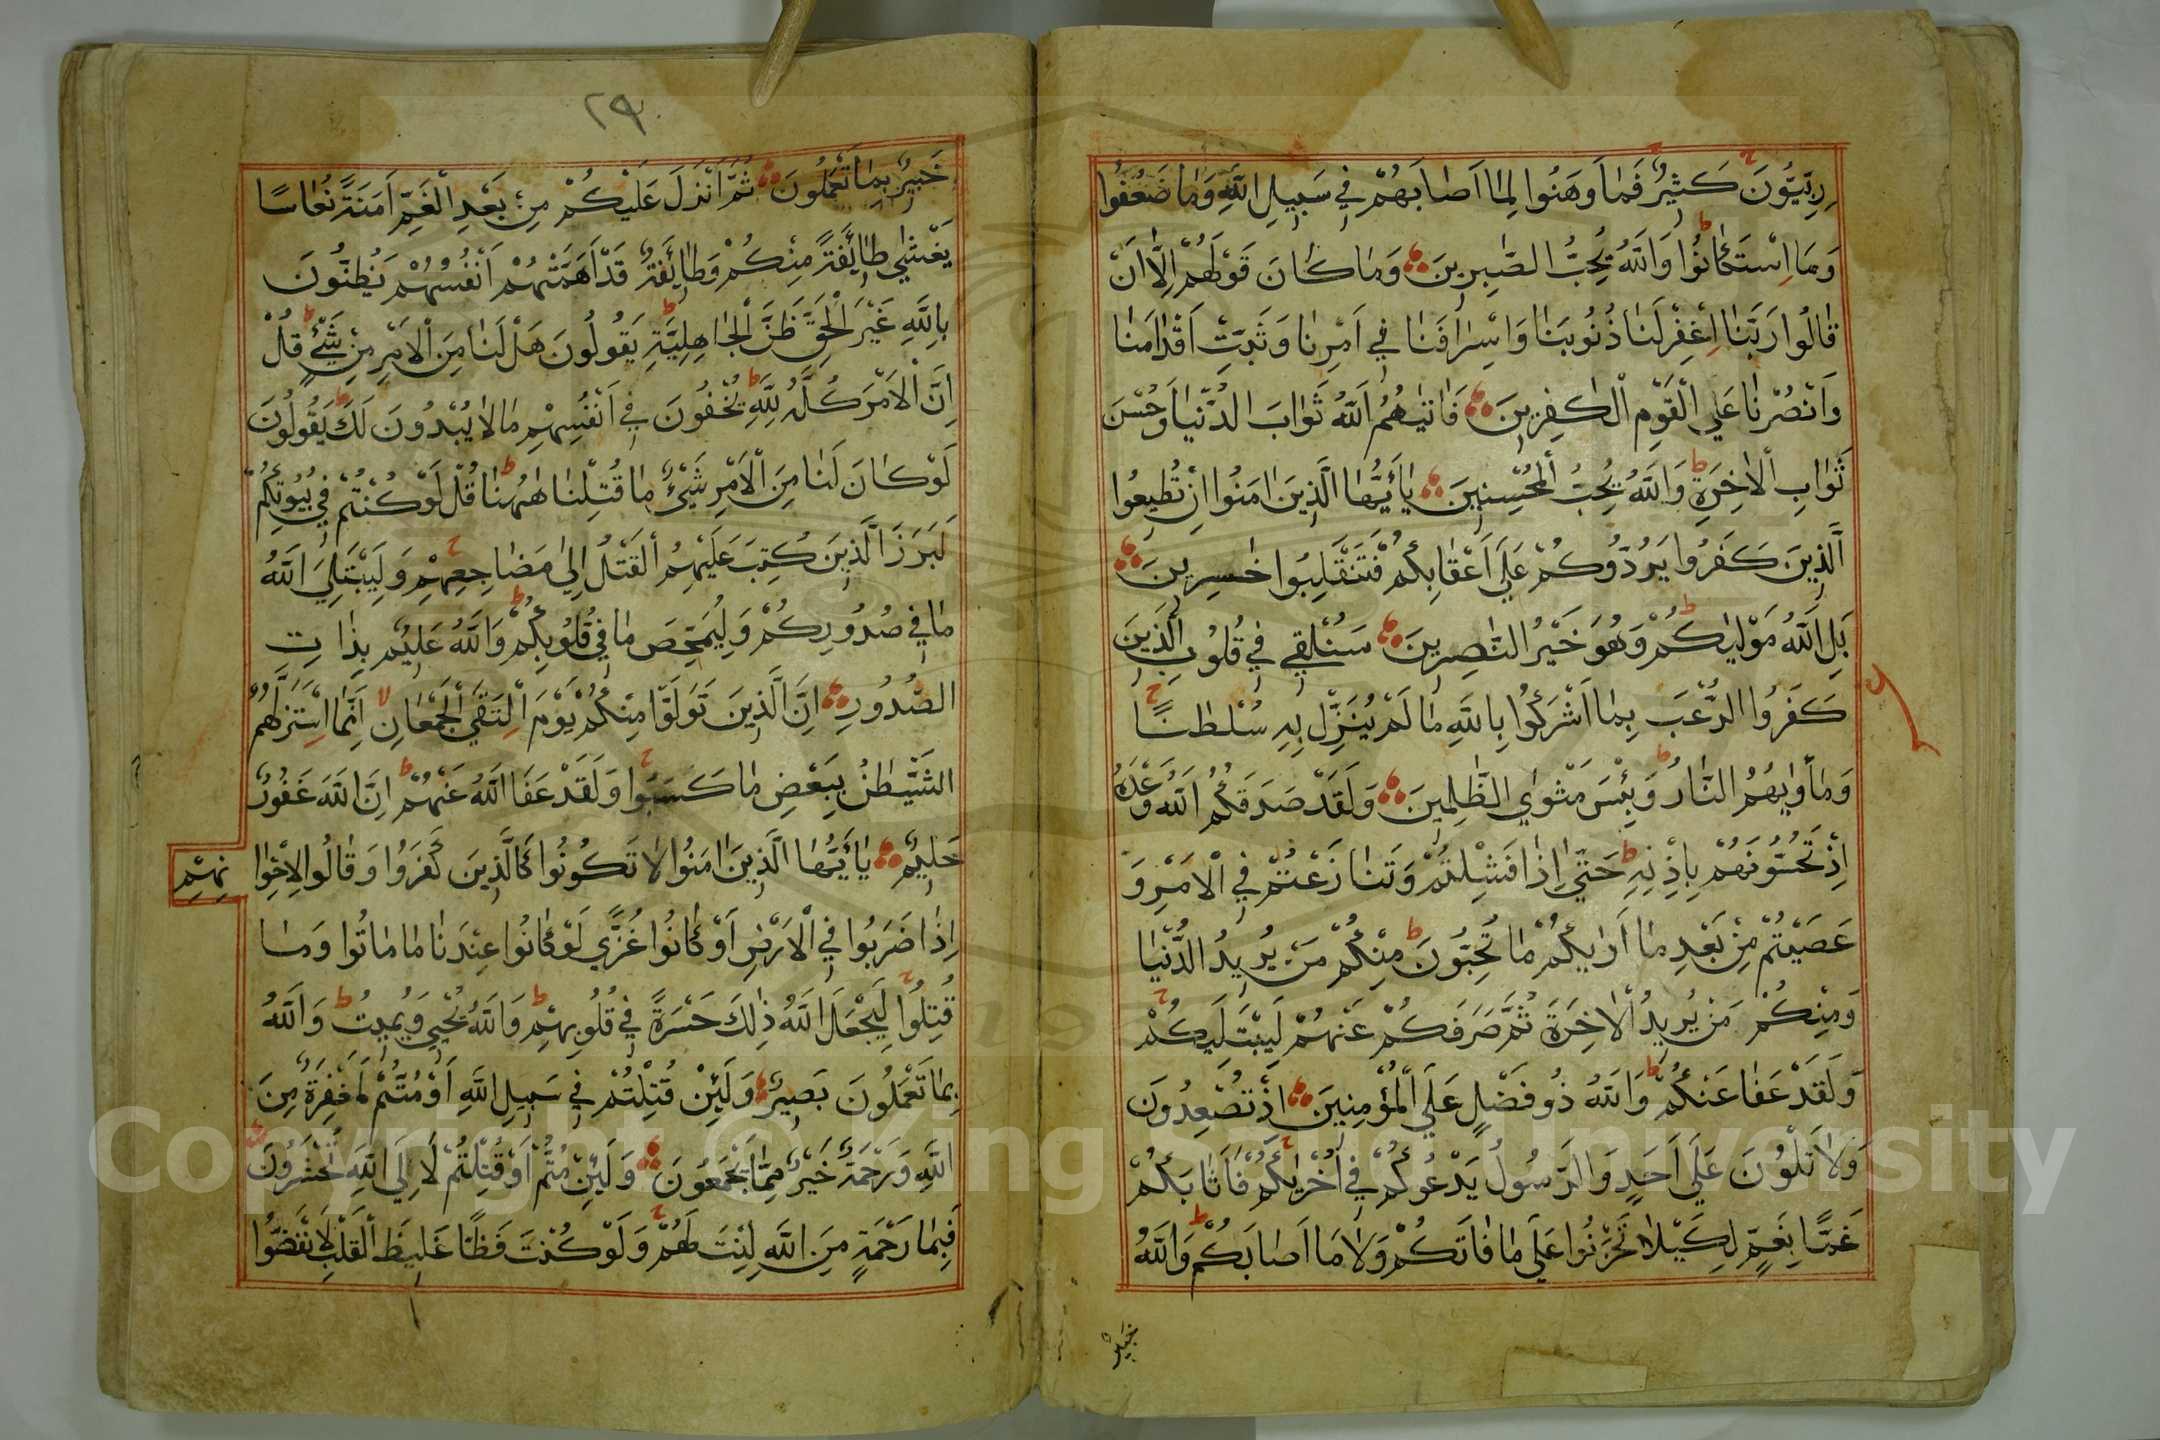 رِبِّيُّونَ كَثِيرٌ فَمَا وَهَنُوا لِمَا اَصَابَهُمْ فِي سَبِيلِ اللَّهِ وَمَا ضَعُفُوا
وَمَا اسْتَكَانُوا وَاللَّهُ يُحِبُّ الصَّبِرِينَ وَمَا كَانَ قَوْلَهُمْ اِلَّا اَنْ
قَالُوا رَبَّنَا اغْفِرْلَنَا ذُنُوبَنَا وَاِسْرَافَنَا فِي اَمْرِنَا وَثَبِّتْ اَقْدَامَنَا
وَانْصُرْنَا عَلَي الْقَوْمِ الْكَفِرِينَ فَاٰتٰيهُمُ اللَّهُ ثَوَابَ الدُّنْيَا وَحُسْنَ
ثَوَابِ الْاٰخِرَةِ وَاللَّهُ يُحِبُّ الْمُحْسِنِينَ يَا أَيُّهَا الَّذِينَ اٰمَنُوا اِنْ تُطِيعُوا
الَّذِينَ كَفَرُوا يَرُدُّوكُمْ عَلَي اَعْقَابِكُمْ فَتَنْقَلِبُوا خٰسِرِينَ
بَلِ اللَّهُ مَوْلٰيكُمْ وَهُوَ خَيْرُ النّٰصِرِينَ سَنُلْقِي فِي قُلُوبِ الَّذِينَ
كَفَرُوا الرُّعْبَ بِمَا اَشْرَكُوا بِاللَّهِ مَا لَمْ يُنَزِّلْ بِهِ سُلْطٰنًا
وَمَأْوٰيهُمُ النَّارُ وَبِئْسَ مَثْوَي الظّٰلِمِينَ وَلَقَدْ صَدَقَكُمُ اللَّهُ وَعْدَهُ
اِذْ تَحُسُّونَهُمْ بِاِذْنِهِ حَتّٰي اِذَا فَشِلْتُمْ وَتَنَازَعْتُمْ فِي الْاَمْرِ وَ
عَصَيْتُمْ مِنْ بَعْدِ مَا اَرٰيكُمْ مَا تُحِبُّونَ مِنْكُمْ مَنْ يُرِيدُ الدُّنْيَا
وَمِنْكُمْ مَنْ يُرِيدُ الْاٰخِرَةَ ثُمَّ صَرَفَكُمْ عَنْهُمْ لِيَبْتَلِيَكُمْ
وَلَقَدْ عَفَا عَنْكُمْ وَاللَّهُ ذُو فَضْلٍ عَلَي الْمُؤْمِنِينَ اِذْ تُصْعِدُونَ
وَلَا تَلْوُنَ عَلَي اَحَدٍ وَالرَّسُولُ يَدْعُوكُمْ فِي اُخْرٰيكُمْ فَاَثَابَكُمْ
غَمًّا بِغَمٍّ لِكَيْلَا تَحْزَنُوا عَلَي مَا فَاتَكُمْ وَلَا مَا اَصَابَكُمْ وَاللَّهُ
خَبِيرٌ
٢٩
خَبِيرٌ بِمَا تَعْمَلُونَ ثُمَّ اَنْزَلَ عَلَيْكُمْ مِنْ بَعْدِ الْغَمِّ اَمَنَةً نُعَاسًا
يَغْشٰي طَائِفَةً مِنْكُمْ وَطَائِفَةٌ قَدْ اَهَمَّتْهُمْ اَنْفُسُهُمْ يَظُنُّونَ
بِاللَّهِ غَيْرَ الْحَقِّ ظَنَّ الْجَاهِلِيَّةِ يَقُولُونَ هَلْ لَنَا مِنَ الْاَمْرِ مِنْ شَيْءٍ قُلْ
اِنَّ الْاَمْرَ كُلَّهُ لِلَّهِ يُخْفُونَ فِي اَنْفُسِهِمْ مَا لَا يُبْدُونَ لَكَ يَقُولُونَ
لَوْ كَانَ لَنَا مِنَ الْاَمْرِ شَيْءٌ مَا قُتِلْنَا هٰهُنَا قُلْ لَوْ كُنْتُمْ فِي بُيُوتِكُمْ
لَبَرَزَ الَّذِينَ كُتِبَ عَلَيْهِمُ الْقَتْلُ اِلٰي مَضَاجِعِهِمْ وَلِيَبْتَلِيَ اللَّهُ
مَا فِي صُدُورِكُمْ وَلِيُمَحِّصَ مَا فِي قُلُوبِكُمْ وَاللَّهُ عَلِيمٌ بِذَاتِ
الصُّدُورِ اِنَّ الَّذِينَ تَوَلَّوْا مِنْكُمْ يَوْمَ الْتَقَي الْجَمْعَانِ اِنَّمَا اسْتَزَلَّهُمُ
الشَّيْطٰنُ بِبَعْضِ مَا كَسَبُوا وَلَقَدْ عَفَا اللَّهُ عَنْهُمْ اِنَّ اللَّهَ غَفُورٌ
حَلِيمٌ يَا أَيُّهَا الَّذِينَ اٰمَنُوا لَا تَكُونُوا كَالَّذِينَ كَفَرُوا وَقَالُوا لِاِخْوَا
نِهِمْ
اِذَا ضَرَبُوا فِي الْاَرْضِ اَوْ كَانُوا غُزًّي لَوْ كَانُوا عِنْدَنَا مَا مَاتُوا وَمَا
قُتِلُوا لِيَجْعَلَ اللَّهُ ذٰلِكَ حَسْرَةً فِي قُلُوبِهِمْ وَاللَّهُ يُحْيِي وَيُمِيتُ وَاللَّهُ
بِمَا تَعْمَلُونَ بَصِيرٌ وَلَئِنْ قُتِلْتُمْ فِي سَبِيلِ اللَّهِ اَوْ مُتُّمْ لَمَغْفِرَةٌ مِنَ
اللَّهِ وَرَحْمَةٌ خَيْرٌ مِمَّا يَجْمَعُونَ وَلَئِنْ مُتُّمْ اَوْ قُتِلْتُمْ لَاِلَي اللَّهِ تُحْشَرُونَ
فَبِمَا رَحْمَةٍ مِنَ اللَّهِ لِنْتَ لَهُمْ وَلَوْ كُنْتَ فَظًّا غَلِيظَ الْقَلْبِ لَانْفَضُّوا
Copyright © King Saud University